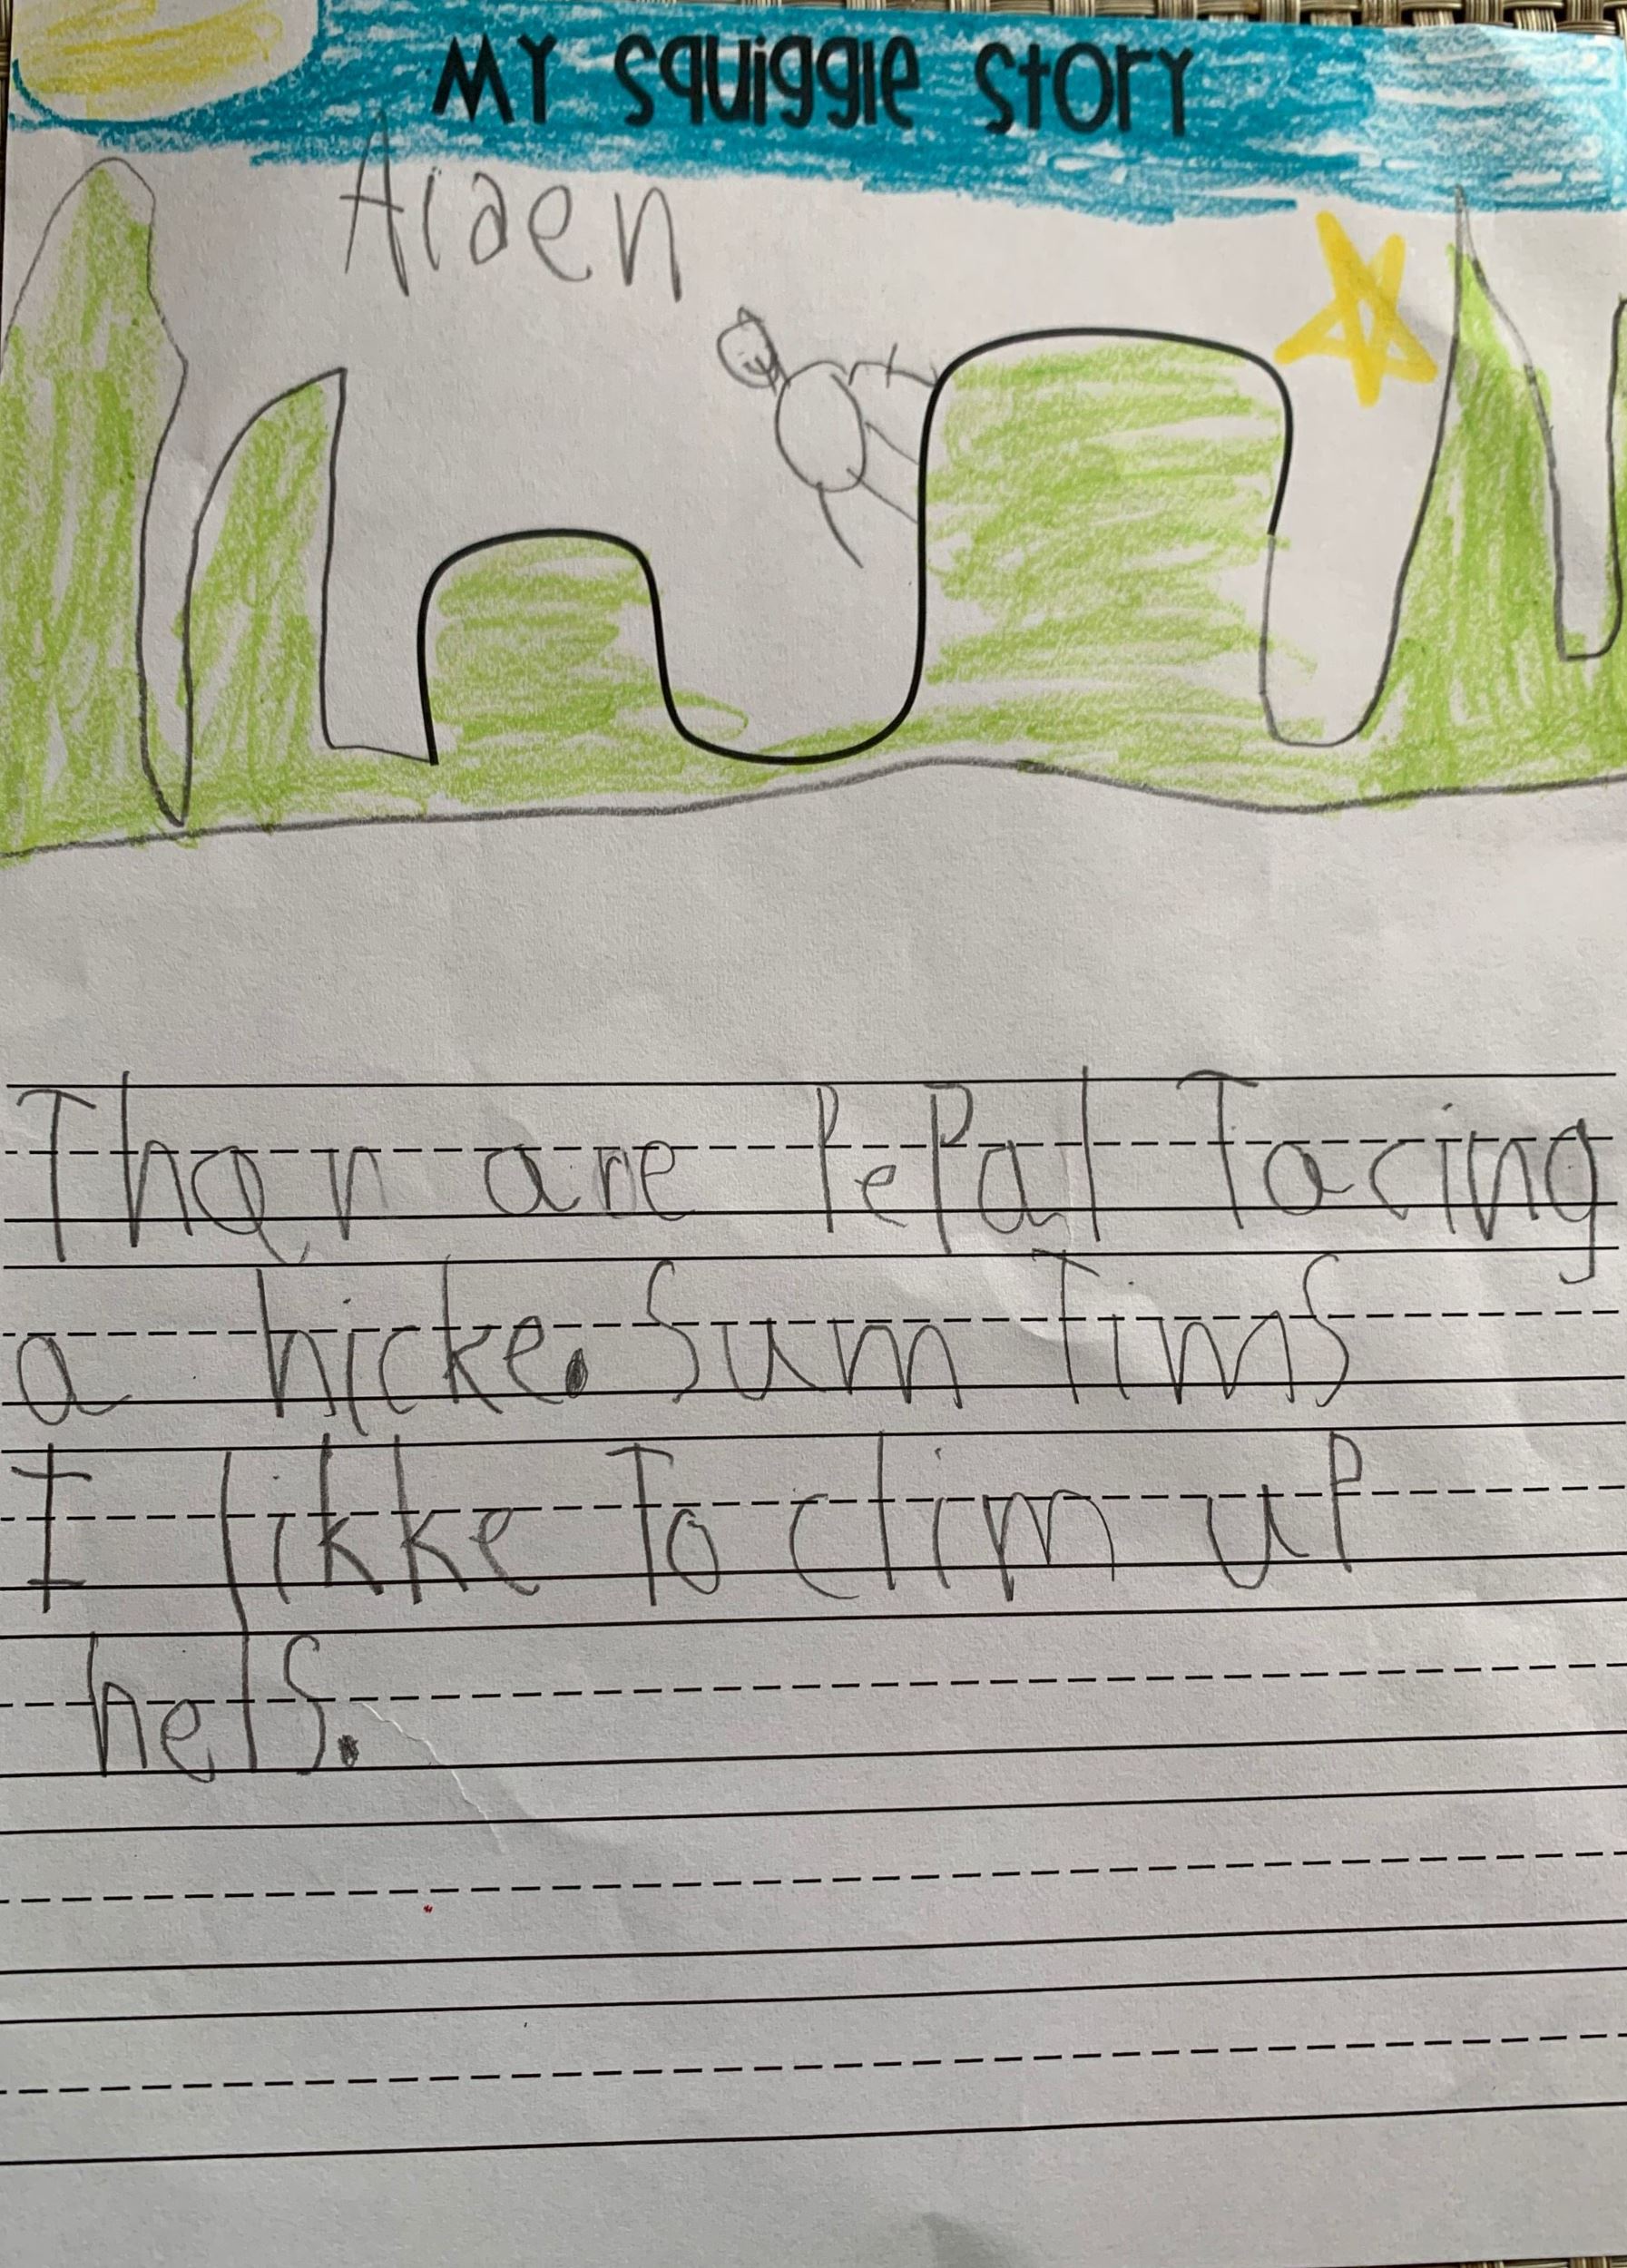 MY squiggle story
Aiden
Than are PePal Tacing
a hicke. Sum Tims
I likke To clim uP
helS.